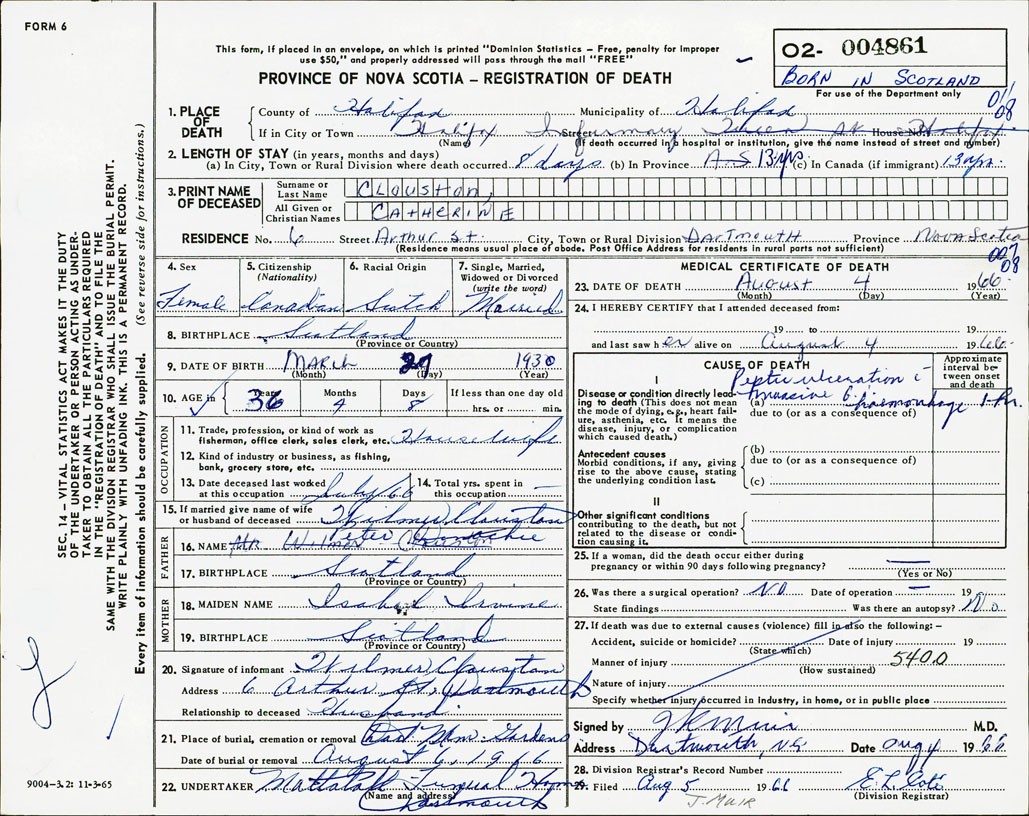 FORM 6
This form, if placed in an envelope, on which is printed "Dominion Statistics – Free, penalty for improper
use $50," and properly addressed will pass through the mail "FREE"
PROVINCE OF NOVA SCOTIA – REGISTRATION OF DEATH
02- 004861
BORN IN SCOTLAND
For use of the Department only
1. PLACE OF DEATH { County of Halifax Municipality of Halifax 011 08
If in City or Town Halifax Infirmary Street House No. Halifax
(Name) (If death occurred in a hospital or institution, give the name instead of street and number)
2. LENGTH OF STAY (in years, months and days)
(a) In City, Town or Rural Division where death occurred 8 days (b) In Province 13 yrs (c) In Canada (if immigrant) 13 yrs.
3. PRINT NAME OF DECEASED { Surname or Last Name CLOUSTON,
All Given or Christian Names CATHERINE
RESIDENCE No. 6 Street Arthur St. City, Town or Rural Division DARTMOUTH Province NOVA SCOTIA
(Residence means usual place of abode. Post Office Address for residents in rural parts not sufficient)
007 08
4. Sex Female
5. Citizenship (Nationality) Canadian
6. Racial Origin Scotch
7. Single, Married, Widowed or Divorced (write the word) Married
8. BIRTHPLACE Scotland
(Province or Country)
9. DATE OF BIRTH MARCH 27 1930
(Month) (Day) (Year)
10. AGE in { Years 36 Months 4 Days 8 If less than one day old hrs. or min.
OCCUPATION
11. Trade, profession, or kind of work as
fisherman, office clerk, sales clerk, etc. Housewife
12. Kind of industry or business, as fishing,
bank, grocery store, etc.
13. Date deceased last worked at this occupation July 66
14. Total yrs. spent in this occupation —
15. If married give name of wife
or husband of deceased Wilmer Clouston
FATHER
16. NAME Mr. Wilmer Peter
17. BIRTHPLACE Scotland
(Province or Country)
MOTHER
18. MAIDEN NAME Isabel Irvine
19. BIRTHPLACE Scotland
(Province or Country)
20. Signature of informant Wilmer Clouston
Address 6 Arthur St. Dartmouth
Relationship to deceased Husband.
21. Place of burial, cremation or removal Dart Mem. Gardens
Date of burial or removal August 6, 1966
22. UNDERTAKER Mattatall Funeral Home
(Name and address) Dartmouth
MEDICAL CERTIFICATE OF DEATH
23. DATE OF DEATH August 4 1966
(Month) (Day) (Year)
24. I HEREBY CERTIFY that I attended deceased from:
19 to 19
and last saw her alive on August 4 1966.
CAUSE OF DEATH
Approximate interval between onset and death
I
Disease or condition directly leading to death (This does not mean the mode of dying, e.g., heart failure, asthenia, etc. It means the disease, injury, or complication which caused death.)
(a) Peptic ulceration c̄ massive G.I. haemorrhage 1 hr.
due to (or as a consequence of)
Antecedent causes
Morbid conditions, if any, giving rise to the above cause, stating the underlying condition last.
(b)
due to (or as a consequence of)
(c)
II
Other significant conditions
contributing to the death, but not related to the disease or condition causing it.
25. If a woman, did the death occur either during
pregnancy or within 90 days following pregnancy? —
(Yes or No)
26. Was there a surgical operation? NO Date of operation — 19
State findings Was there an autopsy? No
27. If death was due to external causes (violence) fill in also the following: –
Accident, suicide or homicide? Date of injury 19
(State which)
Manner of injury 5400
(How sustained)
Nature of injury
Specify whether injury occurred in industry, in home, or in public place
Signed by J K Muir M.D.
Address Dartmouth, NS Date Aug 4 1966
28. Division Registrar's Record Number
29. Filed Aug 5 1966 E. L. Cote
(Division Registrar)
J. MUIR
SEC. 14 – VITAL STATISTICS ACT MAKES IT THE DUTY
OF THE UNDERTAKER OR PERSON ACTING AS UNDER-
TAKER TO OBTAIN ALL THE PARTICULARS REQUIRED
IN THE "REGISTRATION OF DEATH" AND TO FILE THE
SAME WITH THE DIVISION REGISTRAR WHO SHALL ISSUE THE BURIAL PERMIT.
WRITE PLAINLY WITH UNFADING INK. THIS IS A PERMANENT RECORD.
Every item of information should be carefully supplied. (See reverse side for instructions.)
9004-3.2: 11-3-65